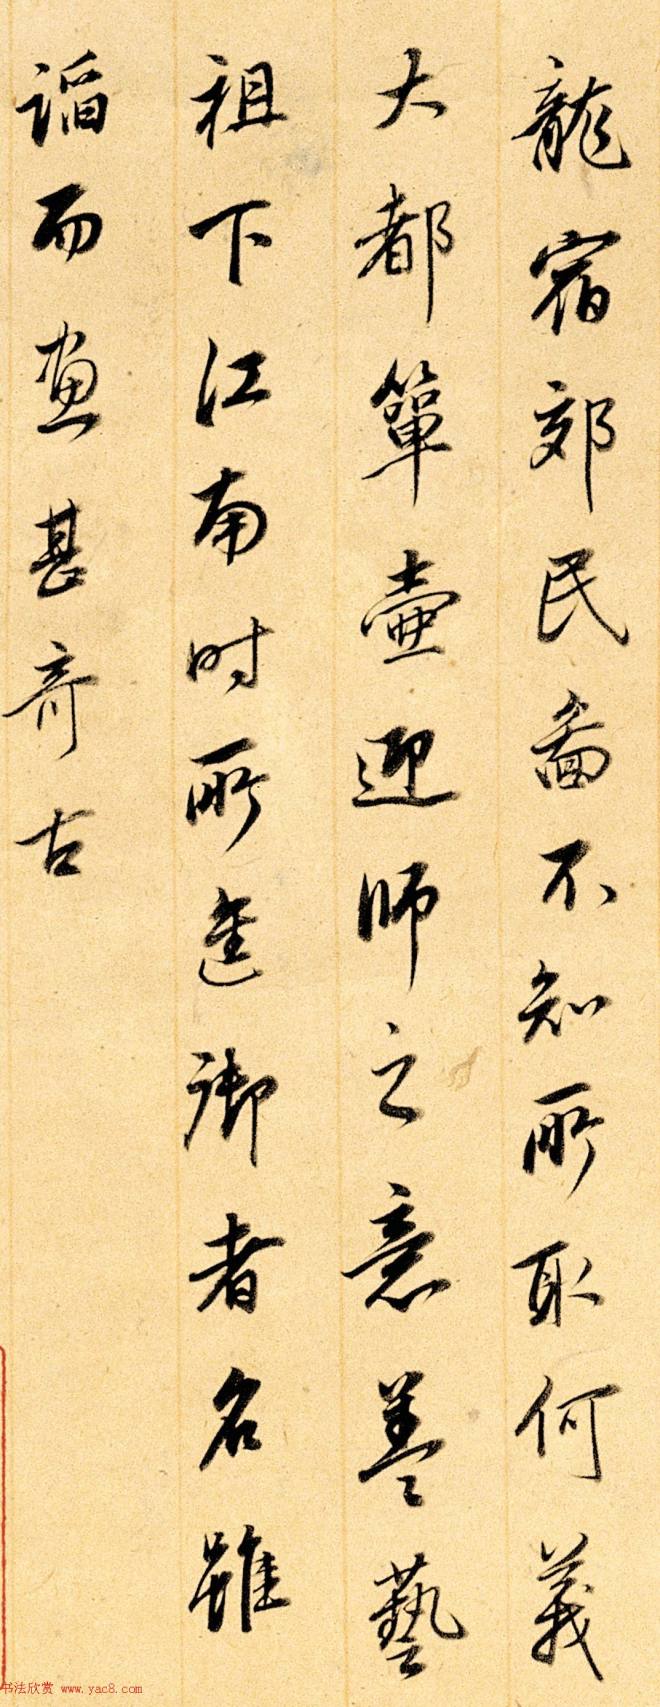 龍宿郊民圖不知所取何義
大都簞壺迎師之意蓋藝
祖下江南時所進御者名雖
謟而畫甚奇古
书法欣赏 www.yac8.com